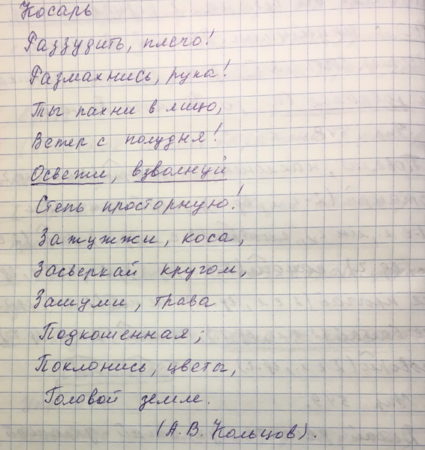 Косарь
Раззудить, плечо!
Размахнись, рука!
Ты пахни в лицо,
Ветер с полудня!
Освежи, взволнуй
Степь просторную!
Зажужжи, коса,
Засверкай кругом,
Зашуми, трава
Подкошенная;
Поклонись, цветы,
Головой земле.
(А.В. Кольцов).